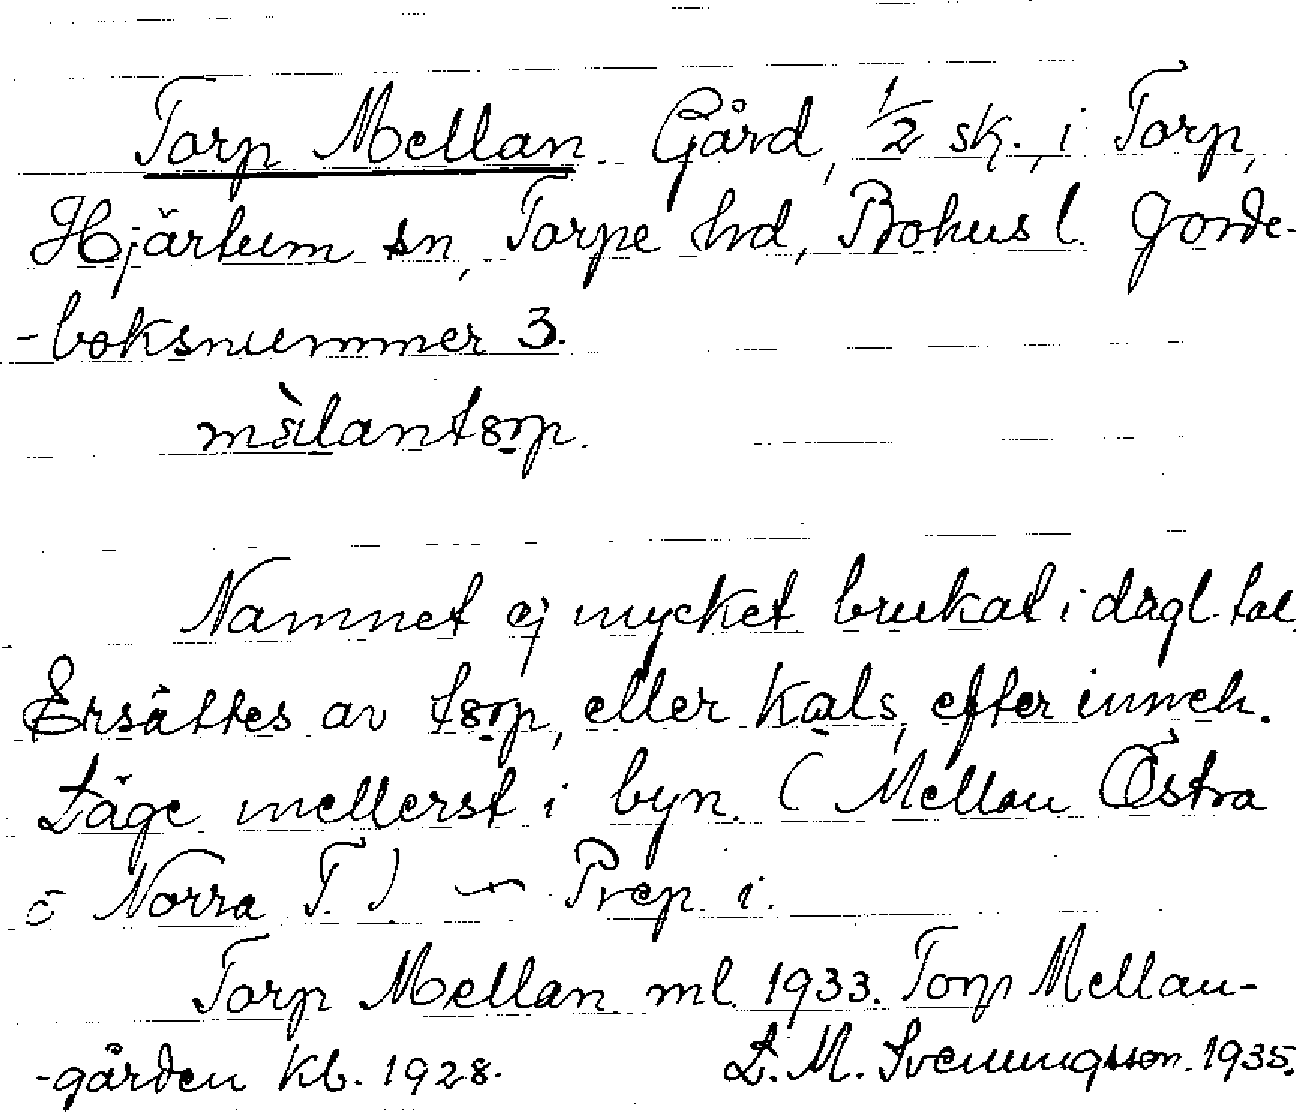 Torp Mellan. Gård, 1/2 sk., i Torp,
Hjärtum sn, Torpe hrd, Bohus l. Jorde-
-boksnummer 3.
mä̀lantorp.
Namnet ej mycket brukat i dagl. tal.
Ersättes av torp, eller kals, efter inneh.
Läge mellerst i byn. (Mellan Östra
o Norra T.) – Prep. i.
Torp Mellan ml. 1933. Torp Mellan-
-gården kb. 1928. L. M. Svenungsson. 1935.